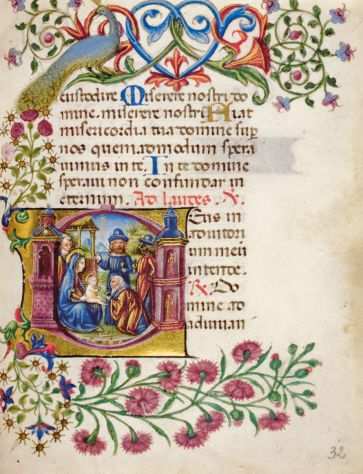 custodire Miserere nostri do
mine. miserere nostri Fiat
misericordia tua domine sup
nos quemadmodum spera
uimus in te. In te domine
speraui non confundar in
eternum. Ad laudes. V.
Deus in
adiutori
um meu
intende.
R. Do
mine ad
adiuuan
32